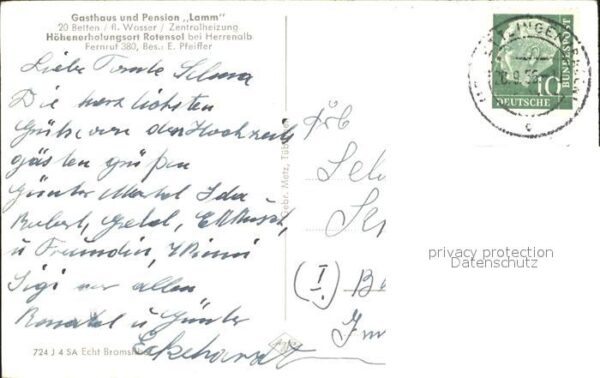 Gasthaus und Pension „Lamm"
20 Betten / fl. Wasser / Zentralheizung
Höhenerholungsort Rotensol bei Herrenalb
Fernruf 380, Bes.: E. Pfeiffer
Liebe Tante Selma
Die herzlichsten
Grüße von den Hochzeits
gästen grüßen
Günter Ida
Robert, Gretel,
u Freundin,
Sigi vor allen
u Günter
Eckehardt
724 J 4 SA Echt Bromsilber
Gebr. Metz, Tüb
Frl
Sel
(I)
ETTLINGEN
DEUTSCHE
BUNDESPOST
10
c
privacy protection
Datenschutz